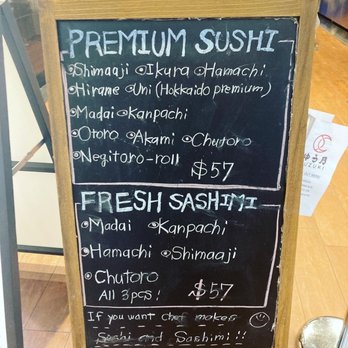 PREMIUM SUSHI
Shimaaji Ikura Hamachi
Hirame Uni (Hokkaido premium)
Madai Kanpachi
Otoro Akami Chutoro
Negitoro-roll
$57
FRESH SASHIMI
Madai Kanpachi
Hamachi Shimaaji
Chutoro
All 3pcs! $57
If you want chef makes
Sushi and Sashimi!!